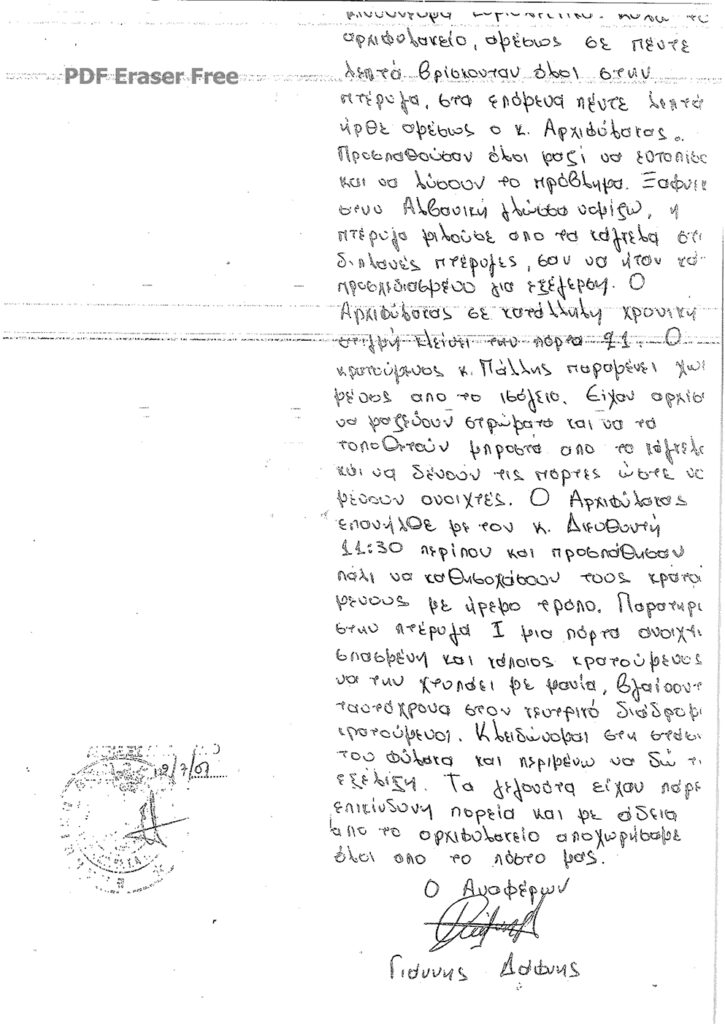 αρχιφυλακείο, αμέσως σε πέντε
PDF Eraser Free
λεπτά βρίσκονταν όλοι στην
πτέρυγα, στα επόμενα πέντε λεπτά
ήρθε αμέσως ο κ. Αρχιφύλακας.
Προσπαθούσαν όλοι μαζί να εντοπίσ
και να λύσουν το πρόβλημα. Ξαφνικ
στην Αλβανική γλώσσα νομίζω, η
πτέρυγα μιλούσε από τα κάγκελα στι
διπλανές πτέρυγες, σαν να ήταν κά
προσχεδιασμένο για εξέγερση. Ο
Αρχιφύλακας σε κατάλληλη χρονική
στιγμή κλείνει την πόρτα 21. Ο
κρατούμενος κ. Πάλλης παραμένει χωι
μένος απο το ισόγειο. Είχαν αρχίσ
να μαζεύουν στρώματα και να τα
τοποθετούν μπροστά απο τα κάγκελ
και να δένουν τις πόρτες ώστε να
μένουν ανοιχτές. Ο Αρχιφύλακας
επανήλθε με τον κ. Διευθυντή
11:30 περίπου και προσπάθησαν
πάλι να καθησυχάσουν τους κρατού
μενους με ήρεμο τρόπο. Παρατηρ
στην πτέρυγα Ι μια πόρτα ανοιχτ
σπασμένη και κάποιος κρατούμενος
να την χτυπάει με μανία, βγαίνουν
ταυτόχρονα στον κεντρικό διάδρομ
κρατούμενοι. Κλειδώνομαι στη στάσ
του φύλακα και περιμένω να δώ τι
εξέλιξη. Τα γεγονότα είχαν πάρε
επικίνδυνη πορεία και με άδεια
απο το αρχιφυλακείο αποχωρήσαμε
όλοι απο το πόστο μας.
12/7/07
Ο Αναφέρων
Γιάννης Δάφνης